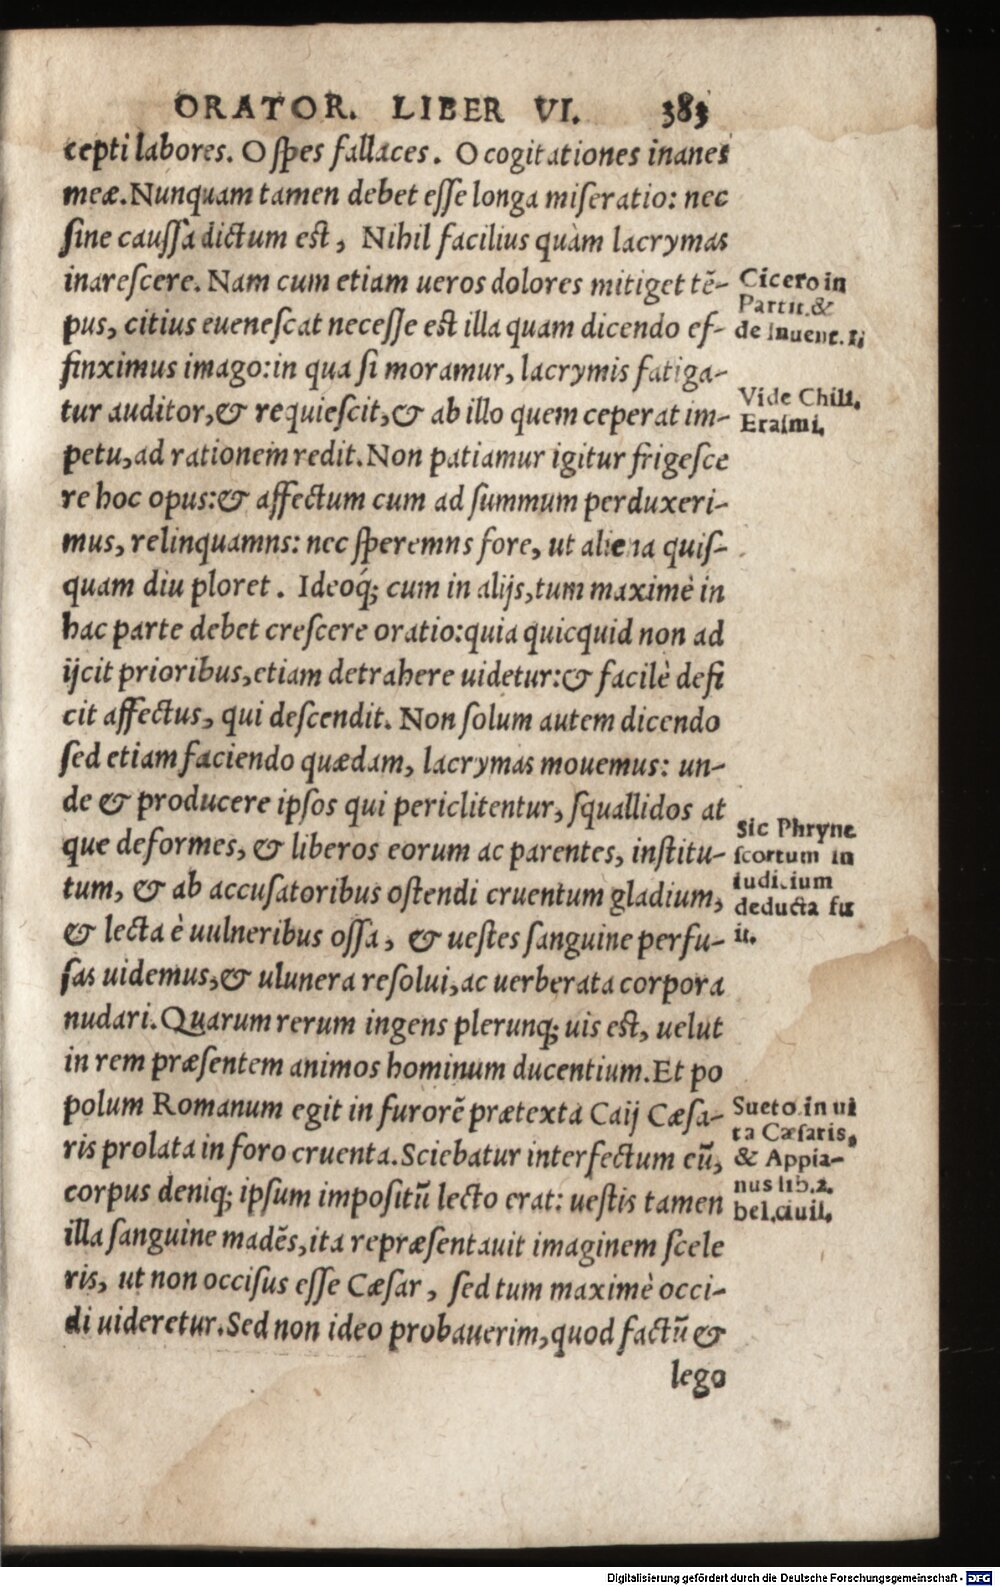 ORATOR. LIBER VI. 383
cepti labores. O ſpes fallaces. O cogitationes inanes
meæ. Nunquam tamen debet eſſe longa miſeratio: nec
ſine cauſſa dictum est, Nihil facilius quàm lacrymas
inareſcere. Nam cum etiam ueros dolores mitiget tẽ-
pus, citius eueneſcat neceſſe est illa quam dicendo ef-
finximus imago: in qua ſi moramur, lacrymis fatiga-
tur auditor, & requieſcit, & ab illo quem ceperat im-
petu, ad rationem redit. Non patiamur igitur frigeſce
re hoc opus: & affectum cum ad ſummum perduxeri-
mus, relinquamns: nec ſperemns fore, ut aliena quiſ-
quam diu ploret. Ideoq́; cum in alijs, tum maximè in
hac parte debet creſcere oratio: quia quicquid non ad
ijcit prioribus, etiam detrahere uidetur: & facilè defi
cit affectus, qui deſcendit. Non ſolum autem dicendo
ſed etiam faciendo quædam, lacrymas mouemus: un-
de & producere ipſos qui periclitentur, ſquallidos at
que deformes, & liberos eorum ac parentes, inſtitu-
tum, & ab accuſatoribus oſtendi cruentum gladium,
& lecta è uulneribus oſſa, & ueſtes ſanguine perfu-
ſas uidemus, & ulunera reſolui, ac uerberata corpora
nudari. Quarum rerum ingens plerunq; uis est, uelut
in rem præſentem animos hominum ducentium. Et po
polum Romanum egit in furorẽ prætexta Caij Cæſa-
ris prolata in foro cruenta. Sciebatur interfectum eũ,
corpus deniq; ipſum impoſitũ lecto erat: ueſtis tamen
illa ſanguine madẽs, ita repræſentauit imaginem ſcele
ris, ut non occiſus eſſe Cæſar, ſed tum maximè occi-
di uideretur. Sed non ideo probauerim, quod factũ &
lego
Cicero in
Partit. &
de Inuent. 1.
Vide Chili.
Eraſmi.
Sic Phryne
ſcortum in
iudicium
deducta fu
it.
Sueto. in ui
ta Cæſaris,
& Appia-
nus lib. 2.
bel. ciuil.
Digitalisierung gefördert durch die Deutsche Forschungsgemeinschaft - DFG